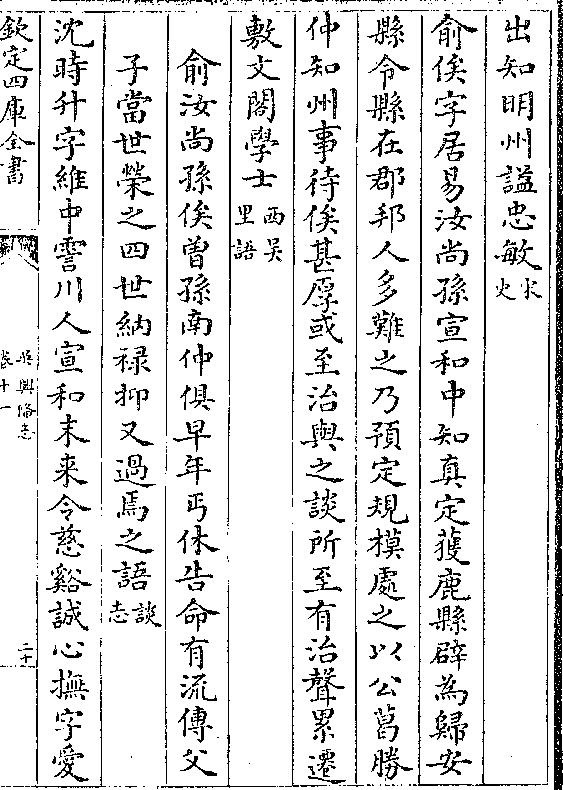 出知明州謚忠敏宋史
俞俟字居易汝尚孫宣和中知真定獲鹿縣辟為歸安
縣令縣在郡邦人多難之乃預定規模處之以公葛勝
仲知州事待俟甚厚或至治與之談所至有治聲累遷
敷文閣學士西吳里語
俞汝尚孫俟曽孫南仲俱早年丐休告命有流傳父
子當世榮之四世納禄抑又過焉之語談志
沈時升字維中霅川人宣和末来令慈谿誠心撫字愛
欽定四庫全書
吳興備志
卷十一
二十